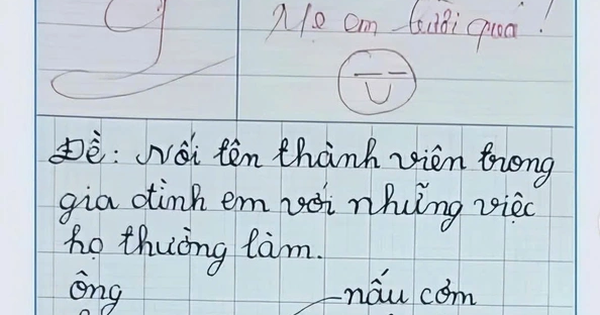 9
Mẹ em lười quá!
Đề: Nối tên thành viên trong
gia đình em với những việc
họ thường làm.
ông
nấu cơm